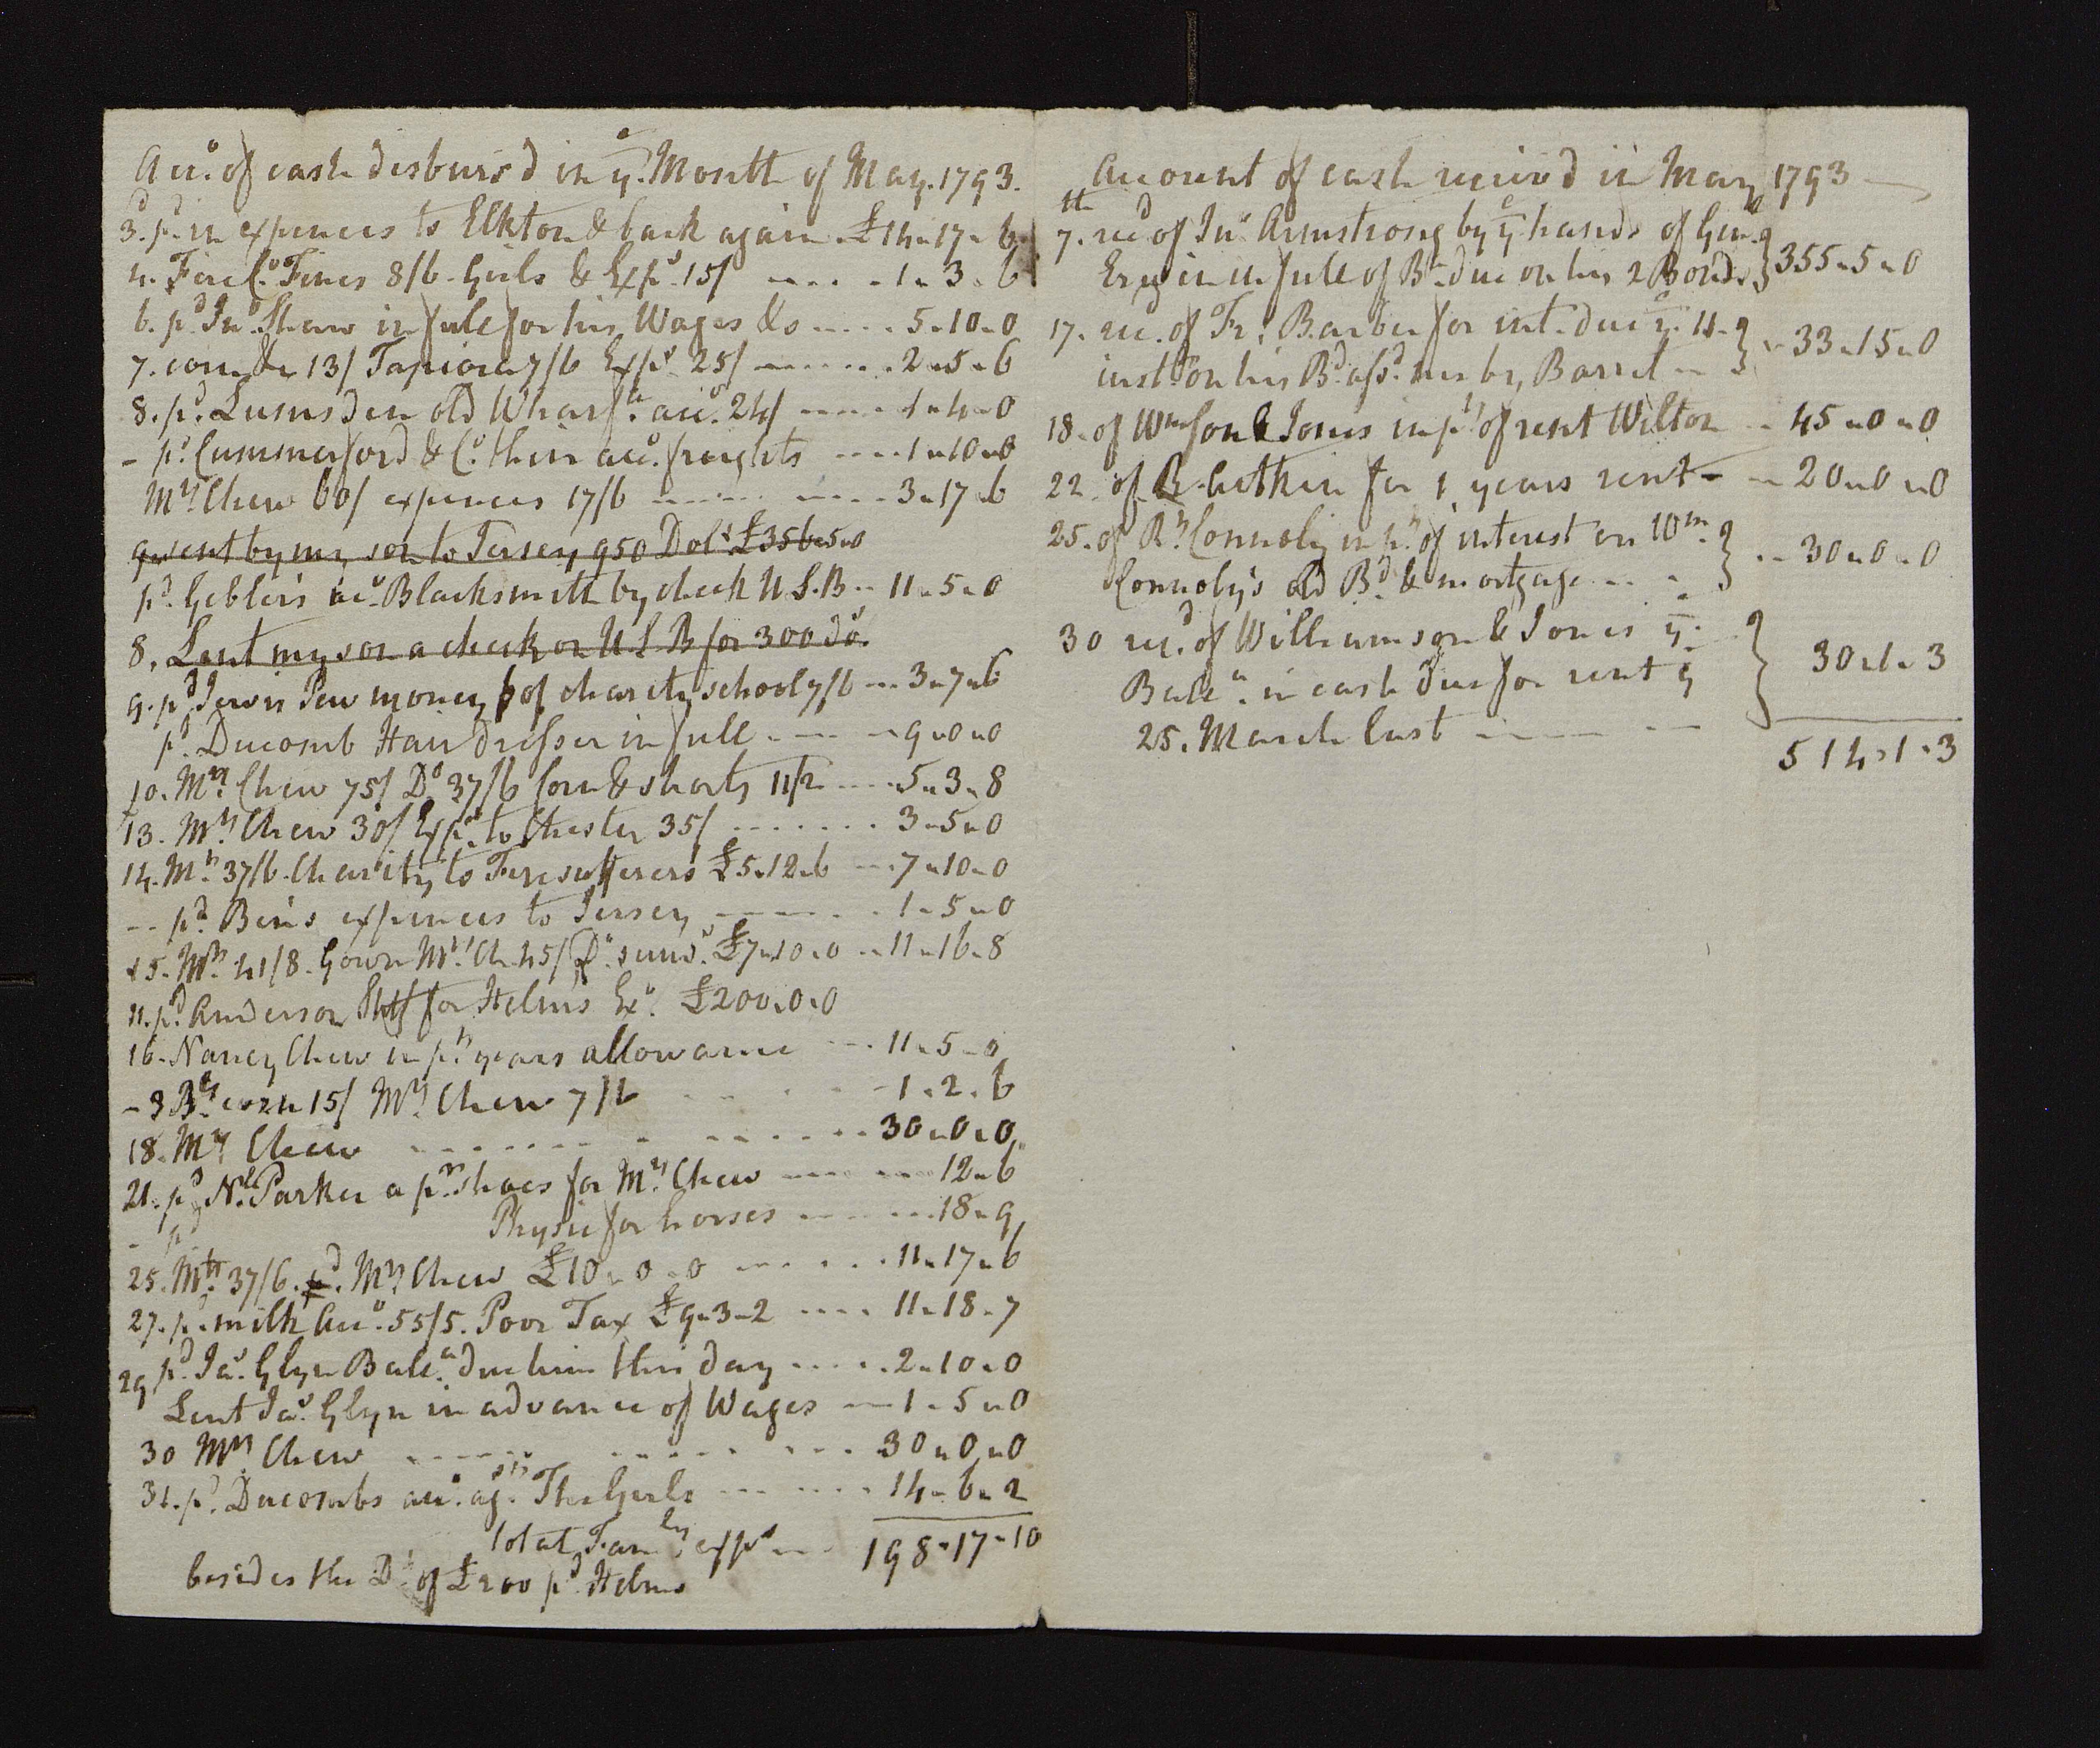 Acco. of cash disburs'd in ye. Month of May. 1793.
3. pd. in expences to Elkton & back again. £14"17"6
4. Fire Co. Fines 8/6. Girls & Exps. 15/ 1"3"6
6. pd. Jno. Shaw in full for his Wages &c 5"10"0
7. corn &c 13/ Tapioca 7/6 Exps. 25/ 2"5"6
8. pd. Lumsden old Wharfe. acco. 24/ 1"4"0
- pd. Cummerford & Co. their acco. freights 1"10"0
Mrs. Chew 60/ expences 17/6 3"17"6
9. sent by my son to Jersey 950 Dols. £356"5"0
pd. Gebler's acco. Blacksmith by check U.S.B 11"5"0
8. Lent my son a check on U.S.B for 300 do.
9. pd. Jervis Pew money & of charity school 7/6 3"7"6
pd. Ducomb Hair dresser in full 9"0"0
10. Mrs. Chew 75/ Do. 37/6 Corn & shorts 11/2 5"3"8
13. Mrs. Chew 30/ Exps. to Chester 35/ 3"5"0
14. Mt. 37/6. Charity to Fire sufferers £5"12"6 7"10"0
-- pd. Ben's expences to Jersey 1"5"0
15. Mt. 41/8. Gown Mrs. Ch. 45/ Do. sund. £7"10"0 11"16"8
11. pd. Anderson for Helms Exn. £200"0"0
16. Nancy Chew in pt. years allowance 11"5"0
- 3 Bs. corn 15/ Mrs. Chew 7/6 1"2"6
18. Mrs. Chew 30"0"0
21. pd. Nl. Parker a pr. shoes for Mrs. Chew 12"6
- pd Physic for horses 18"9
25. Mt. 37/6. pd. Mrs. Chew £10"0"0 11"17"6
27. pd. milk Acco. 55/5. Poor Tax £9"3"2 11"18"7
29 pd. Jas. Glyn Balla. due him this day 2"10"0
Lent Jas. Glyn in advance of Wages 1"5"0
30 Mrs. Chew 30"0"0
31. pd. Ducombs acco. agst. The Girls 14"6"2
total Famly. exps 198"17"10
besides the Dt. of £200 pd. Helms
Account of cash receiv'd in May 1793
7th. recd. of Jno. Armstrong by ye hands of Genl.
Erwin in full of Ba. due on his 2 Bonds 355"5"0
17. recd. of Fr. Barber for int. due ye. 11
inst. on his Bd. assd. me by Barret 33"15"0
18. of Wmson & Jones in pt. of rent Wilton 45"0"0
22. of R. Aitkin for 1 years rent 20"0"0
25. of Rt. Connoly in pt. of interest on Wm.
Connoly's old Bd. & mortgage 30"0"0
30 recd. of Williamson & Jones ye.
Balla. in cash due for rent ye 30"1"3
25. March last
514"1"3